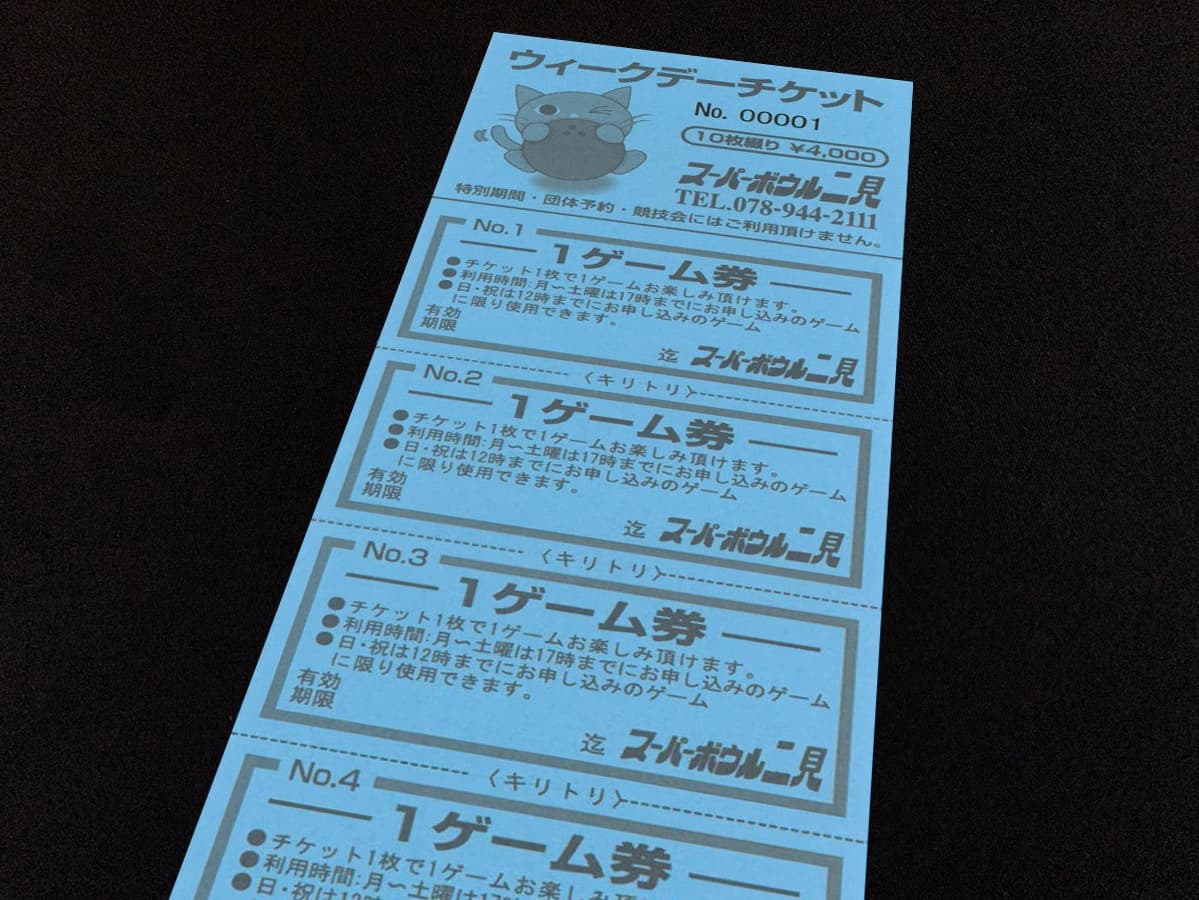 ウィークデーチケット
No. 00001
10枚綴り ¥4,000
スーパーボウル二見
TEL.078-944-2111
特別期間・団体予約・競技会にはご利用頂けません。
No.1
1ゲーム券
●チケット1枚で1ゲームお楽しみ頂けます。
●利用時間:月〜土曜は17時までにお申し込みのゲーム
●日・祝は12時までにお申し込みのゲーム
に限り使用できます。
有効
期限
迄 スーパーボウル二見
〈キリトリ〉
No.2
1ゲーム券
●チケット1枚で1ゲームお楽しみ頂けます。
●利用時間:月〜土曜は17時までにお申し込みのゲーム
●日・祝は12時までにお申し込みのゲーム
に限り使用できます。
有効
期限
迄 スーパーボウル二見
〈キリトリ〉
No.3
1ゲーム券
●チケット1枚で1ゲームお楽しみ頂けます。
●利用時間:月〜土曜は17時までにお申し込みのゲーム
●日・祝は12時までにお申し込みのゲーム
に限り使用できます。
有効
期限
迄 スーパーボウル二見
〈キリトリ〉
No.4
1ゲーム券
●チケット1枚で1ゲームお楽しみ頂
●利用時間:月〜土曜は17
●日・祝は12時